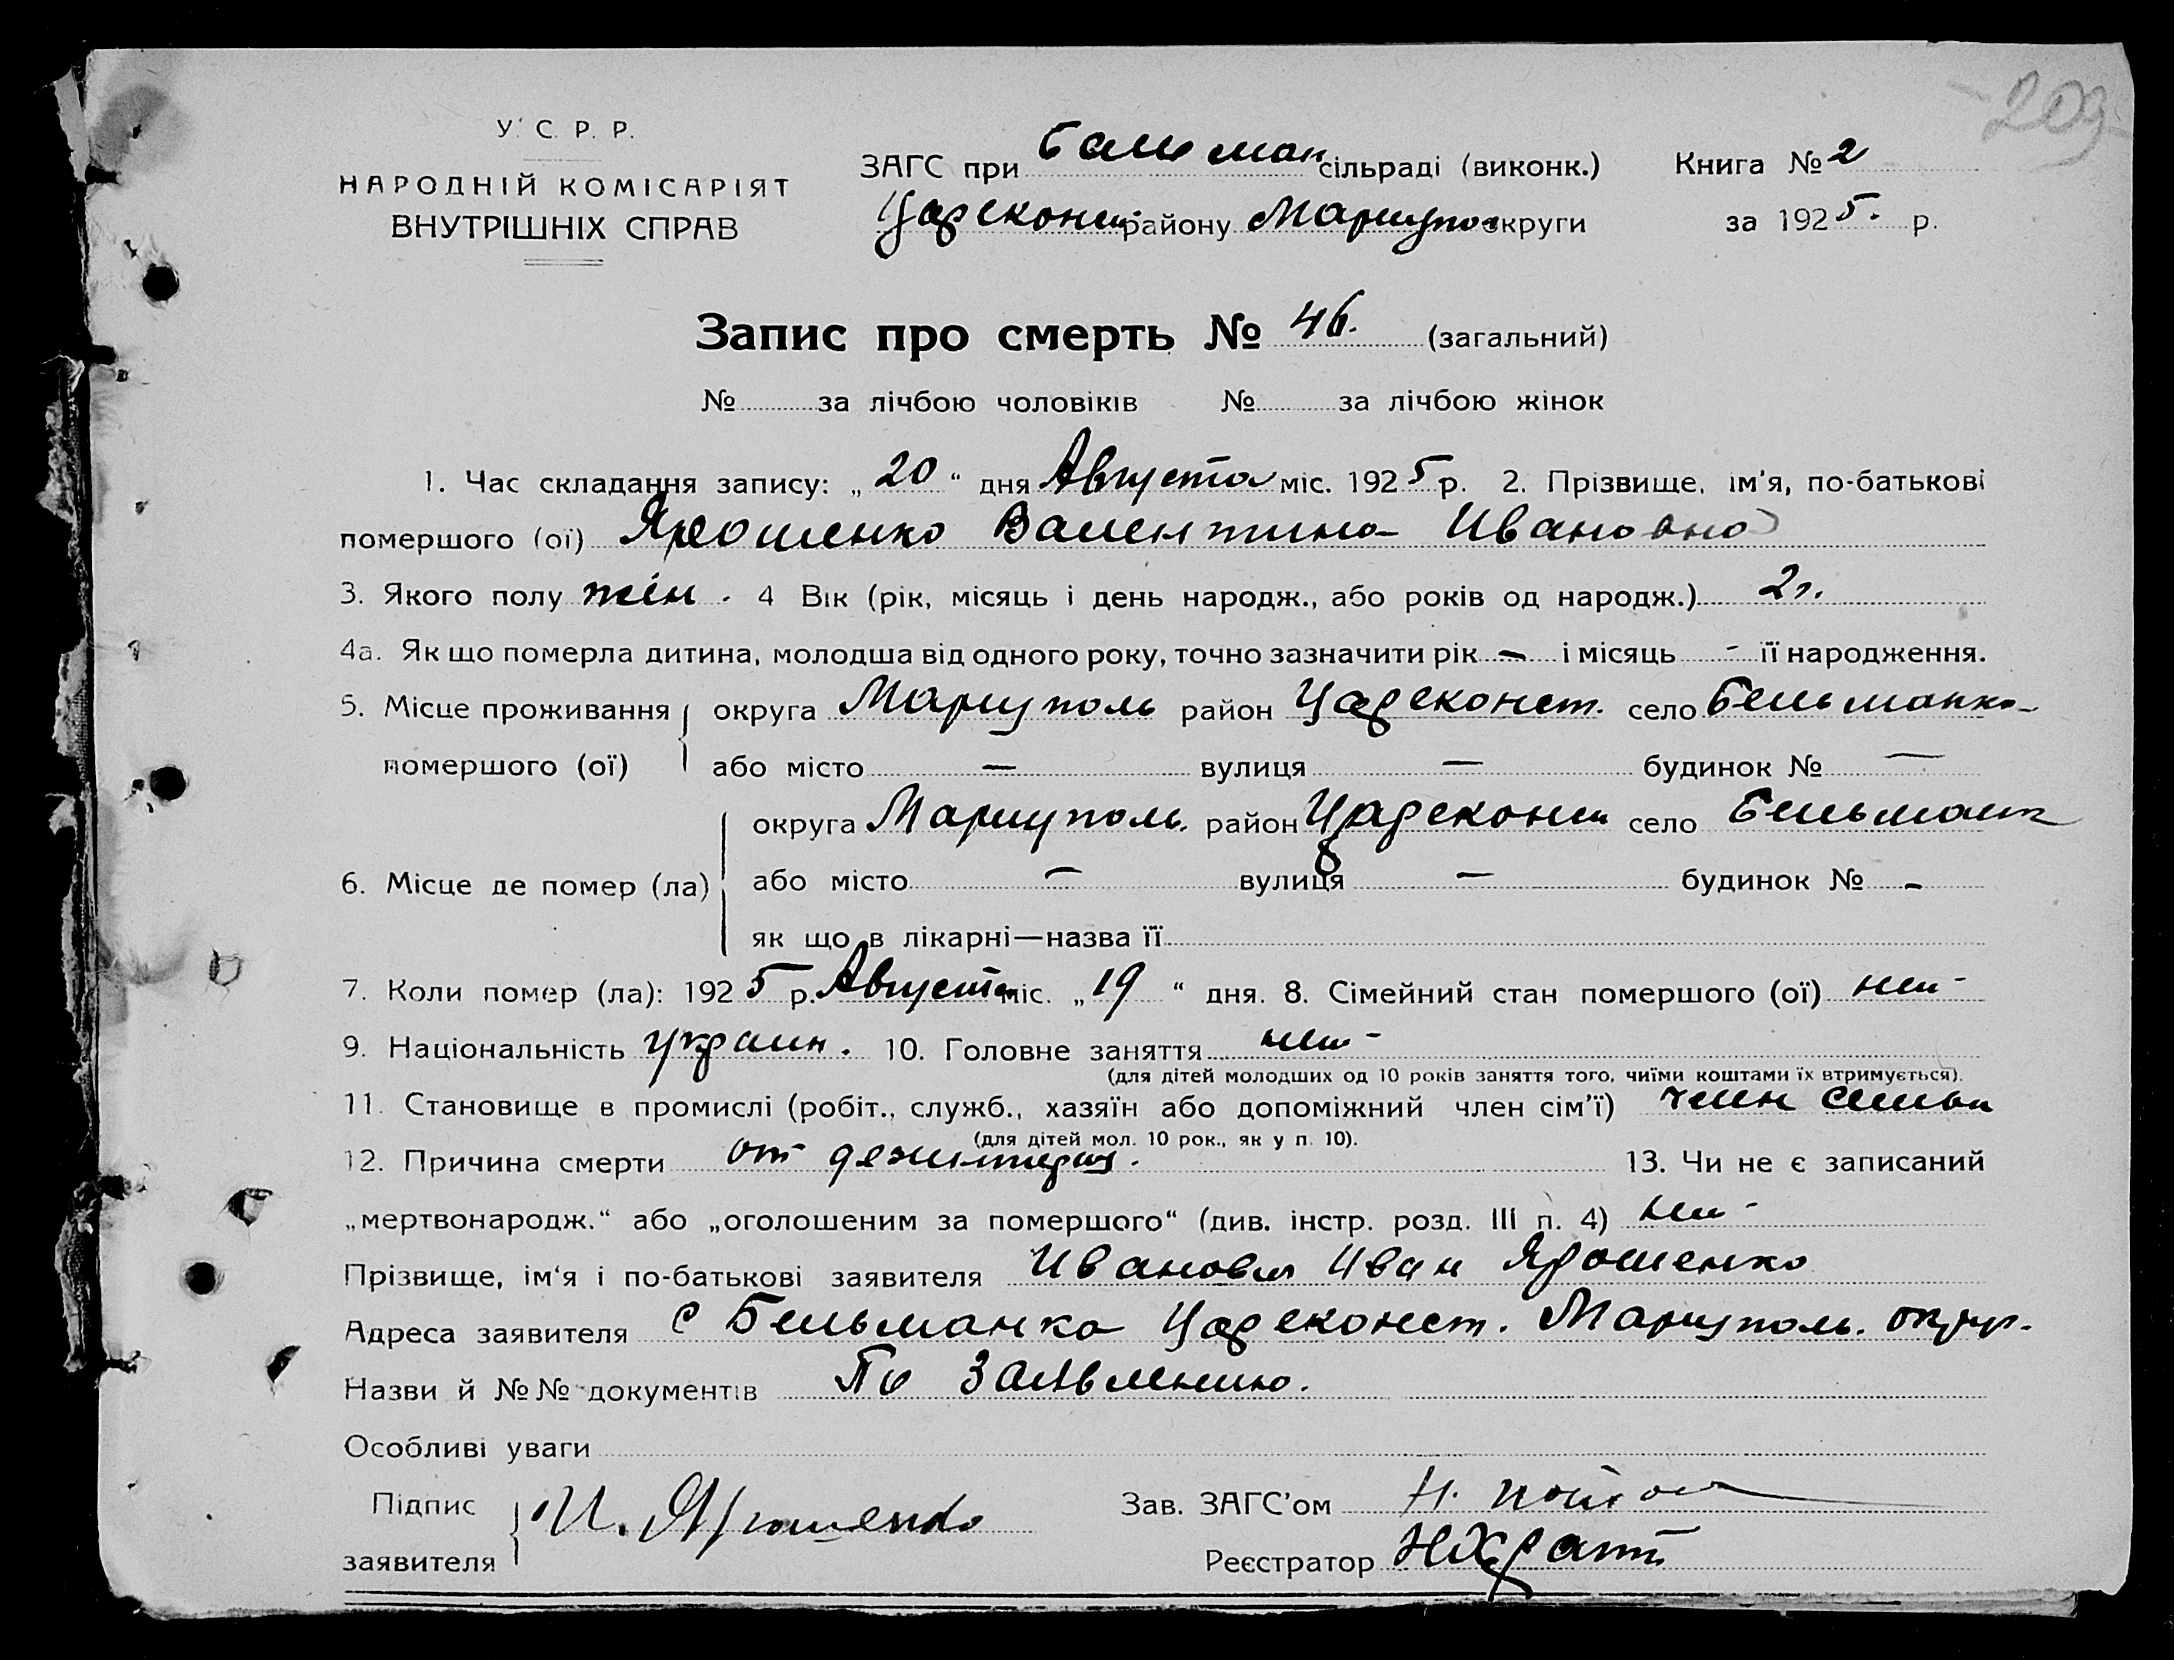 209
У. С. Р. Р.
НАРОДНІЙ КОМІСАРІЯТ
ВНУТРІШНІХ СПРАВ
ЗАГС при Бальман сільраді (виконк.) Книга № 2
Цареконст. району Мариупол округи за 1925. р.
Запис про смерть № 46. (загальний)
№ за лічбою чоловіків № за лічбою жінок
1. Час складання запису: „20“ дня Августа міс. 1925 р. 2. Прізвище, ім'я, по-батькові
помершого (ої) Ярошенко Валентина Ивановна
3. Якого полу жін. 4 Вік (рік, місяць і день народж., або років од народж.) 2 г.
4а. Як що померла дитина, молодша від одного року, точно зазначити рік — і місяць - її народження.
5. Місце проживання округа Мариуполь район Цареконст. село Бельманка
помершого (ої) або місто — вулиця — будинок № —
округа Мариуполь. район Цареконст село Бельманк
6. Місце де помер (ла) або місто — вулиця — будинок № -
як що в лікарні—назва її
7. Коли помер (ла): 1925 р. Августа міс. „19“ дня. 8. Сімейний стан помершого (ої) нет
9. Національність украин. 10. Головне заняття нет
(для дітей молодших од 10 років заняття того, чиїми коштами їх втримується).
11. Становище в промислі (робіт., служб., хазяїн або допоміжний член сім'ї) член семьи
(для дітей мол. 10 рок., як у п. 10).
12. Причина смерти от дезинтерии. 13. Чи не є записаний
„мертвонародж.“ або „оголошеним за помершого“ (див. інстр. розд. III п. 4) нет
Прізвище, ім'я і по-батькові заявителя Иванович Иван Ярошенко
Адреса заявителя с Бельманка Цареконст. Мариуполь. округ.
Назви й №№ документів По заявлению.
Особливі уваги
Підпис заявителя И. Ярошенко
Зав. ЗАГС'ом Н.
Реєстратор